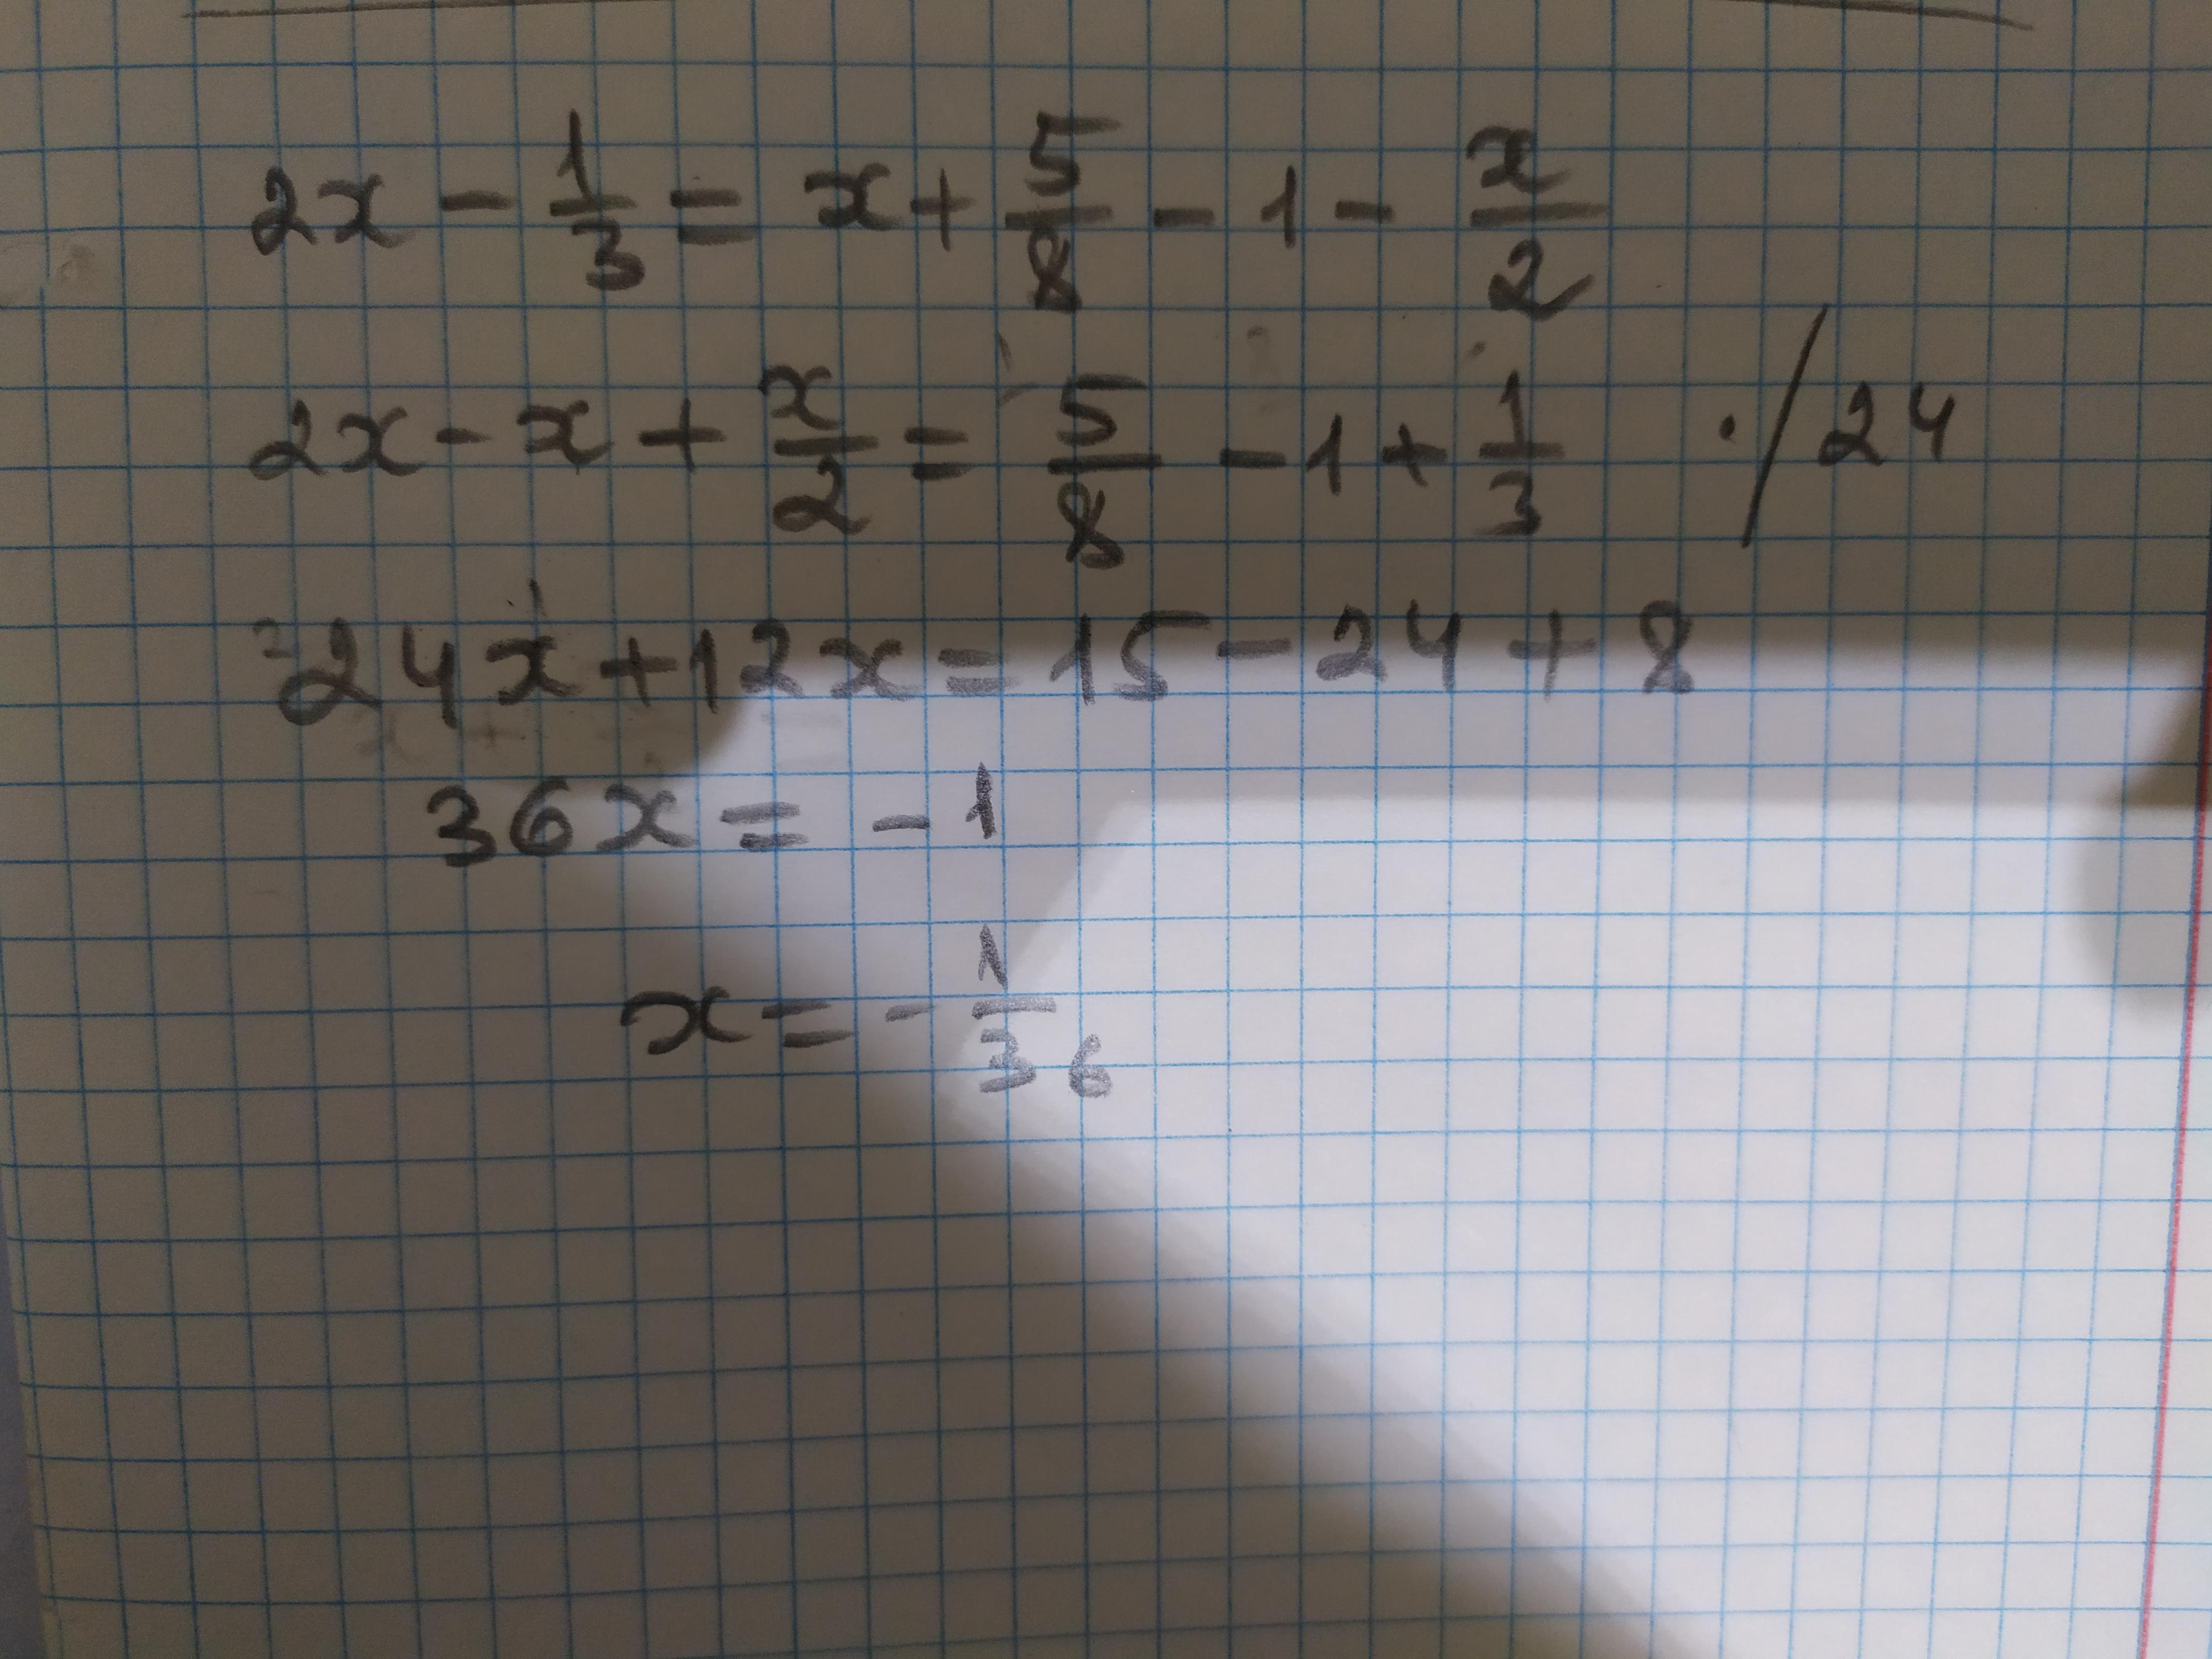 2x - 1/3 = x + 5/8 - 1 - x/2
2x - x + x/2 = 5/8 - 1 + 1/3 ·/24
24x + 12x = 15 - 24 + 8
36x = -1
x = - 1/36